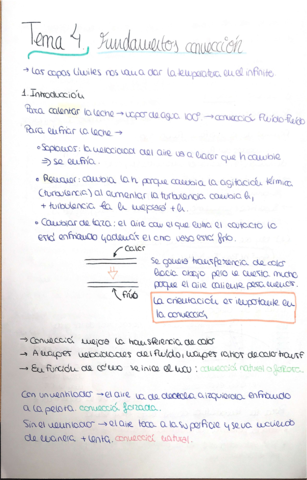 Tema 4, Fundamentos convección
→ Las capas límites nos van a dar la temperatura en el infinito.
1. Introducción
Para calentar la leche → vapor de agua 100° → convección fluido-fluido
Para enfriar la leche →
• Soplamos: la velocidad del aire va a hacer que h cambie
⇒ se enfría.
• Remover: cambia la h porque cambia la agitación térmica
(turbulencia) al aumentar la turbulencia cambia h,
+ turbulencia la h mejora ↑ h.
• Cambiar de taza: el aire con el que entra el contacto la
está enfriando y además el otro vaso está frío.
calor
frío
Se genera transferencia de calor
hacia abajo pero le cuesta mucho
porque el aire caliente pesa menos.
La orientación es importante en
la convección
→ Convección mejora la transferencia de calor
→ A mayor velocidades del fluido, mayor ratios de calor transf
→ En función de cómo se inicie el mov: convección natural o forzada.
Con un ventilador → el aire va de derecha a izquierda enfriando
a la pelota convección forzada.
Sin el ventilador → el aire toca a la superficie y se va moviendo
de manera + lenta. convección natural.